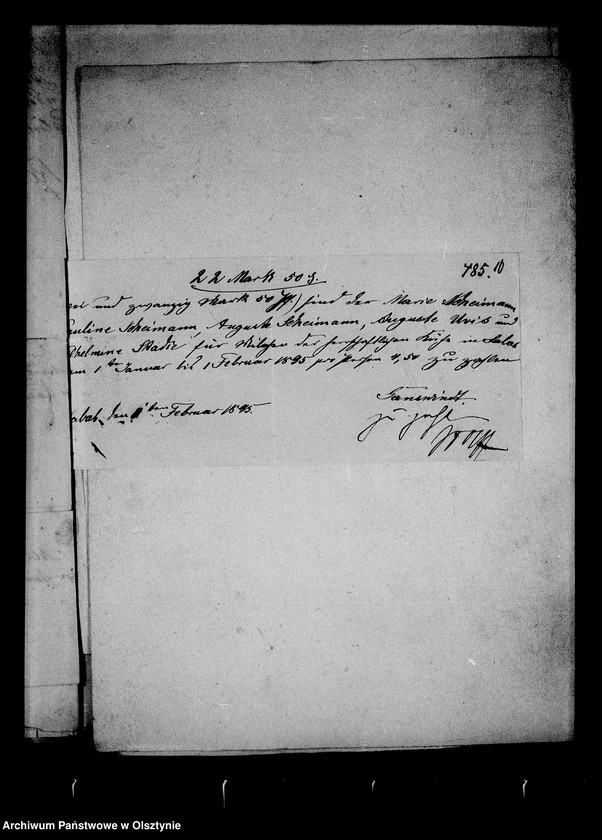 785. 10
22 Mark 50 ₰.
und zwanzig Mark 50 Pf.) sind der Marie Scheimann,
auline Scheimann, Auguste Scheimann, Auguste und
helmine für Milchen der herrschaftlichen Kühe in
1ten Januar bis 1 Februar 1895 pro Person 4,50 zu zahlen
den 1ten Februar 1895.
Archiwum Państwowe w Olsztynie